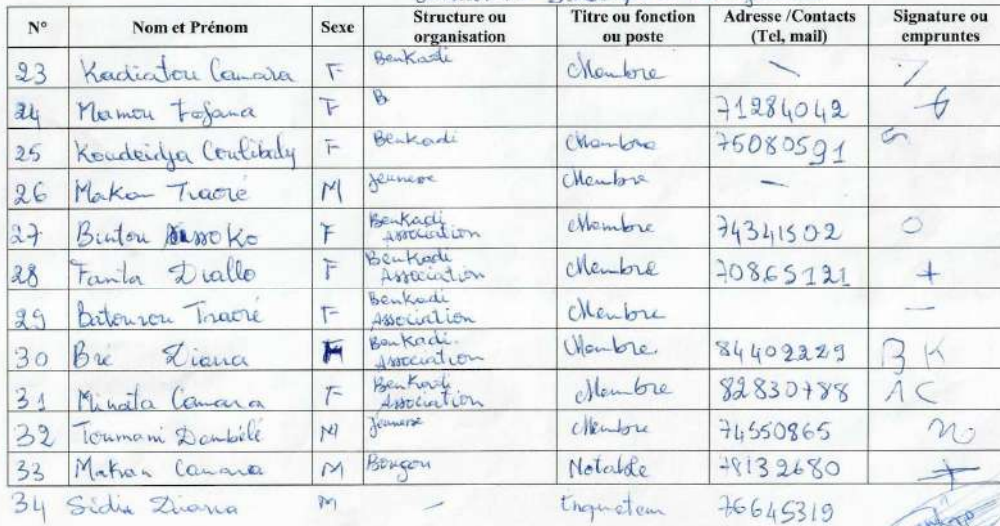 N° Nom et Prénom Sexe Structure ou organisation Titre ou fonction ou poste Adresse /Contacts (Tel, mail) Signature ou empruntes
23 Kadiatou Camara F Benkadi Membre -
24 Mamou Fofana F B 71284042
25 Koudeidja Coulibaly F Benkadi Membre 75080591
26 Makan Traoré M Jeunesse Membre -
27 Bintou Sissoko F Benkadi Association Membre 74341502 O
28 Fanta Diallo F Benkadi Association Membre 70865121 +
29 Batourou Traoré F Benkadi Association Membre -
30 Bré Diarra Benkadi Association Membre. 84402229 BK
31 Minata Camara F Benkadi Association Membre 82830788 AC
32 Toumani Dembélé M Jeunesse Membre 74550865 no
33 Makan Camara M Bougou Notable 78132680
34 Sidi Diarra M - Enqueteur 76645319